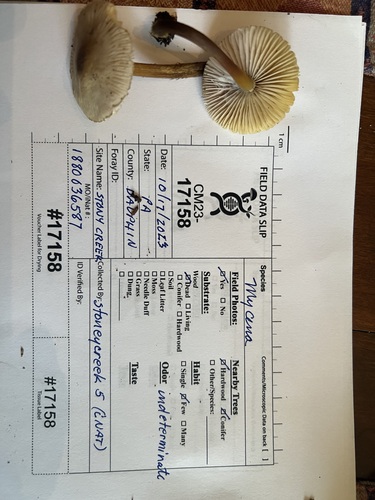 FIELD DATA SLIP
1 cm
Species
Mycena
Comments/Microscopic Data on back [ ]
CM23-
17158
Date: 10/17/2023
State: PA
County: DAUPHIN
Foray ID:
Site Name: STONY CREEK
Collected By: Stoneycreek 5 (iNAT)
MO/iNat #:
1880636587
ID Verified By:
Field Photos:
Yes No
Substrate:
Wood
Dead Living
Conifer Hardwood
Soil
Leaf Litter
Moss
Needle Duff
Grass
Dung
Nearby Trees
Hardwood Conifer
Other/Species:
Habit
Single Few Many
Odor indeterminate
Taste
#17158
Voucher Label for Drying
#17158
Tissue Label